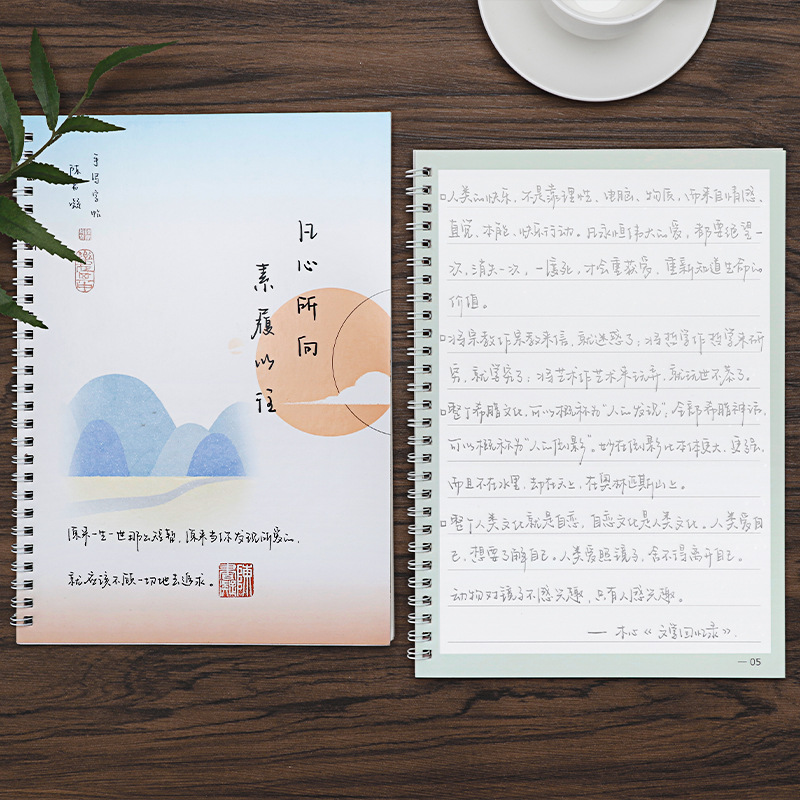 手写字帖
凡心所向
素履以往
原来一生一世那么短暂，原来当你发现所爱的，
就应该不顾一切地去追求。
人类的快乐，不是靠理性、电脑、物质，而来自情感、
直觉、本能、快乐行动。凡永恒伟大的爱，都要绝望一
次，消失一次，一度死，才会重获爱，重新知道生命的
价值。
将宗教作宗教来信，就迷惑了；将哲学作哲学来研
究，就学究了；将艺术作艺术来玩弄，就玩世不恭了。
整个希腊文化，可以概称为“人的发现”；全部希腊神话，
可以概称为“人的倒影”。妙在倒影比本体更大，更强，
而且不在水里，却在天上，在奥林匹斯山上。
整个人类文化就是自恋，自恋文化是人类文化。人类爱自
己，想要了解自己。人类爱照镜子，舍不得离开自己。
动物对镜子不感兴趣，只有人感兴趣。
— 木心《文学回忆录》.
— 05